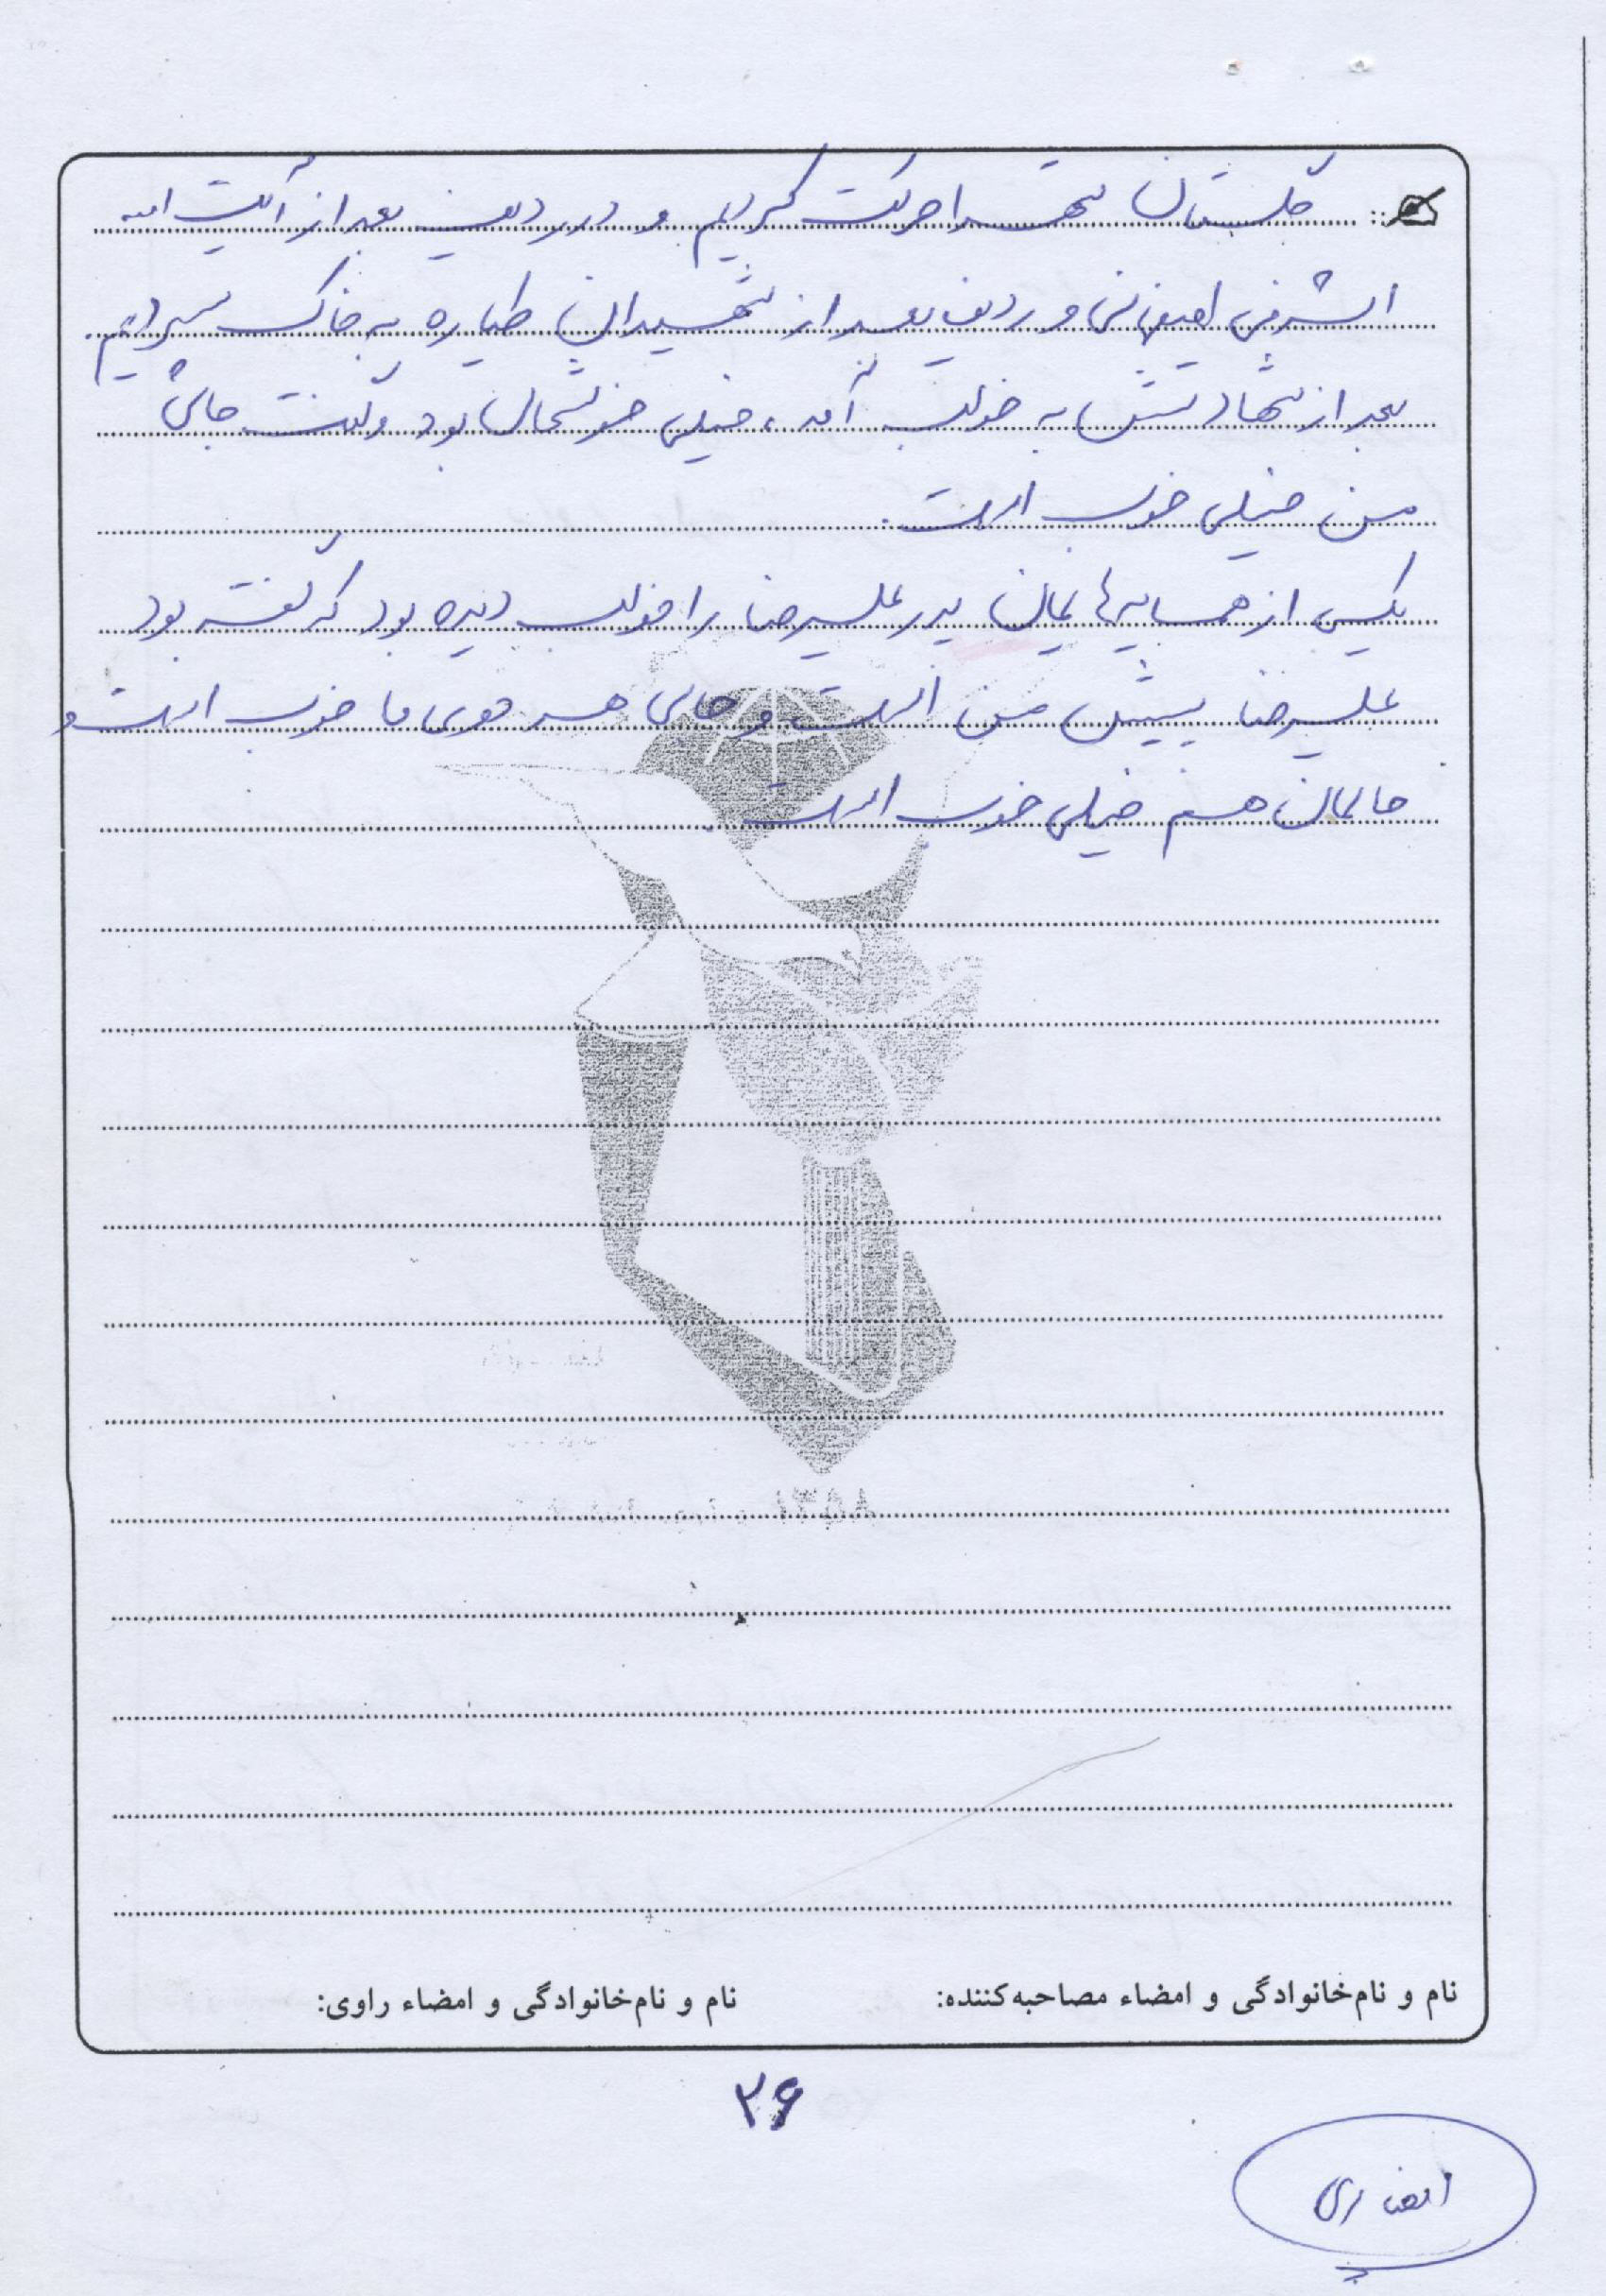 گلستان شهدا حرکت کردیم و در ردیف بعد از آیت الله
اشرفی اصفهانی و ردیف بعد از شهیدان طیاره به خاک سپردیم.
بعد از شهادتش به خواب آمد، خیلی خوشحال بود و گفت جای
من خیلی خوب است.
یکی از همسایه‌هایمان پدر علیرضا را خواب دیده بود که گفته بود
علیرضا پیش من است و جای هر دوی ما خوب است و
حالمان هم خیلی خوب است.
نام و نام‌خانوادگی و امضاء مصاحبه‌کننده:
نام و نام‌خانوادگی و امضاء راوی:
۲۶
انصاری